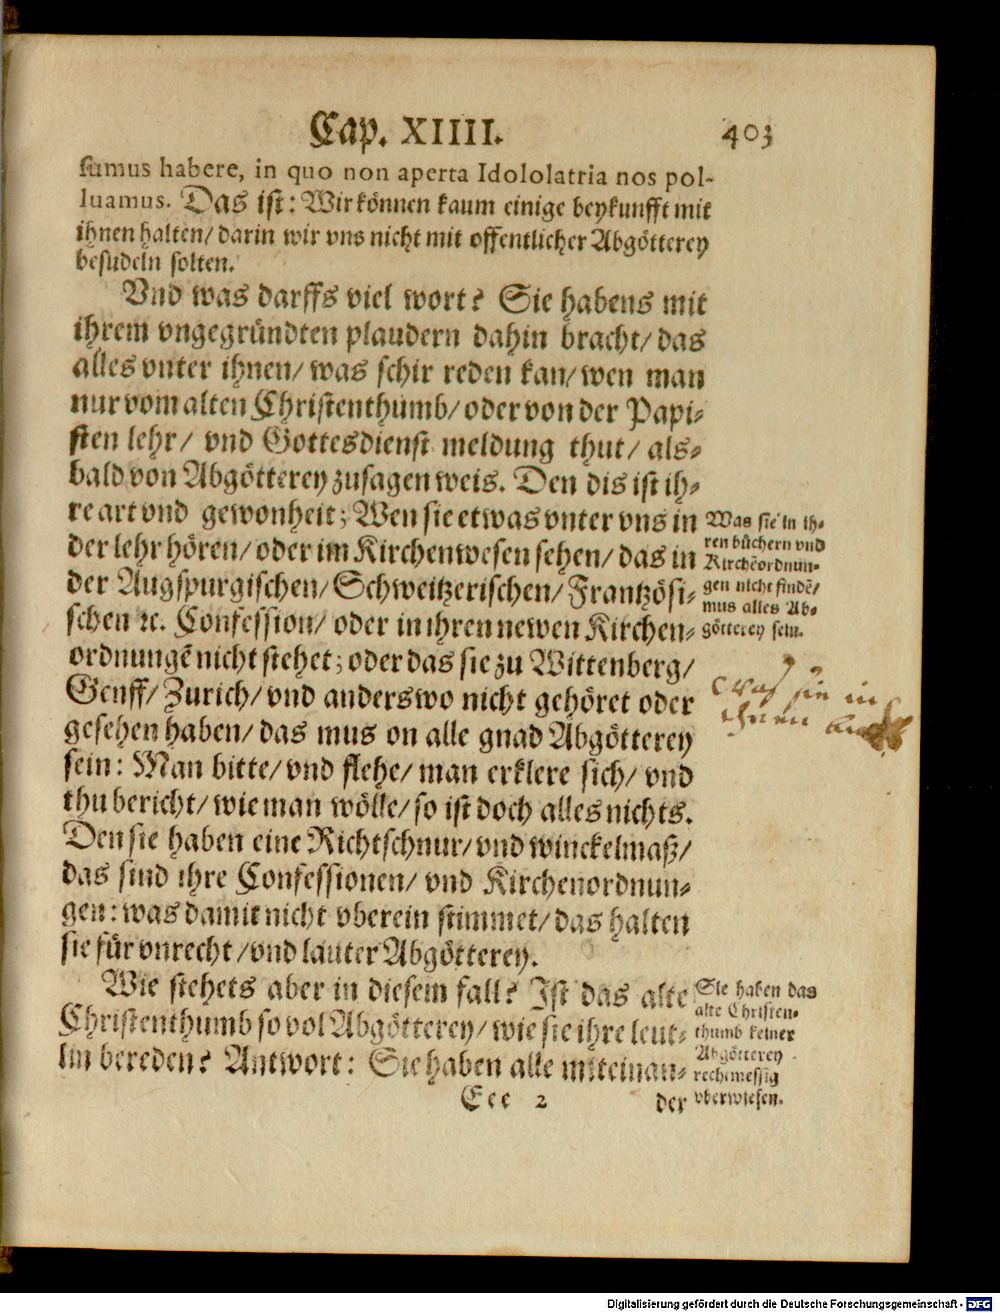 Cap. XIIII. 403
sumus habere, in quo non aperta Idololatria nos pol-
luamus. Das ist: Wir können kaum einige beykunfft mit
ihnen halten/ darin wir vns nicht mit offentlicher Abgötterey
besudeln solten.
Vnd was darffs viel wort? Sie habens mit
ihrem vngegründten plaudern dahin bracht/ das
alles vnter ihnen/ was schir reden kan/ wen man
nur vom alten Christenthumb/ oder von der Papi-
sten lehr/ vnd Gottesdienst meldung thut/ als-
bald von Abgötterey zusagen weis. Den dis ist ih-
re art vnd gewonheit; Wen sie etwas vnter vns in
der lehr hören/ oder im Kirchenwesen sehen/ das in
der Augspurgischen/ Schweitzerischen/ Frantzösi-
schen ꝛc. Confession/ oder in ihren newen Kirchen-
ordnungē nicht stehet; oder das sie zu Wittenberg/
Genff/ Zurich/ vnd anderswo nicht gehöret oder
gesehen haben/ das mus on alle gnad Abgötterey
sein: Man bitte/ vnd flehe/ man erklere sich/ vnd
thu bericht/ wie man wölle/ so ist doch alles nichts.
Den sie haben eine Richtschnur/ vnd winckelmaß/
das sind ihre Confessionen/ vnd Kirchenordnun-
gen: was damit nicht vberein stimmet/ das halten
sie für vnrecht/ vnd lauter Abgötterey.
Wie stehets aber in diesem fall? Ist das alte
Christenthumb so vol Abgötterey/ wie sie ihre leut-
lin bereden? Antwort: Sie haben alle miteinan-
Eee 2 der
Was sie in ih-
ren büchern vnd
Kirchēordnun-
gen nicht findē/
mus alles Ab-
götterey sein.
was sie in
ihnen
Sie haben das
alte Christen-
thumb keiner
Abgötterey
rechtmessig
vberwiesen.
Digitalisierung gefördert durch die Deutsche Forschungsgemeinschaft - DFG